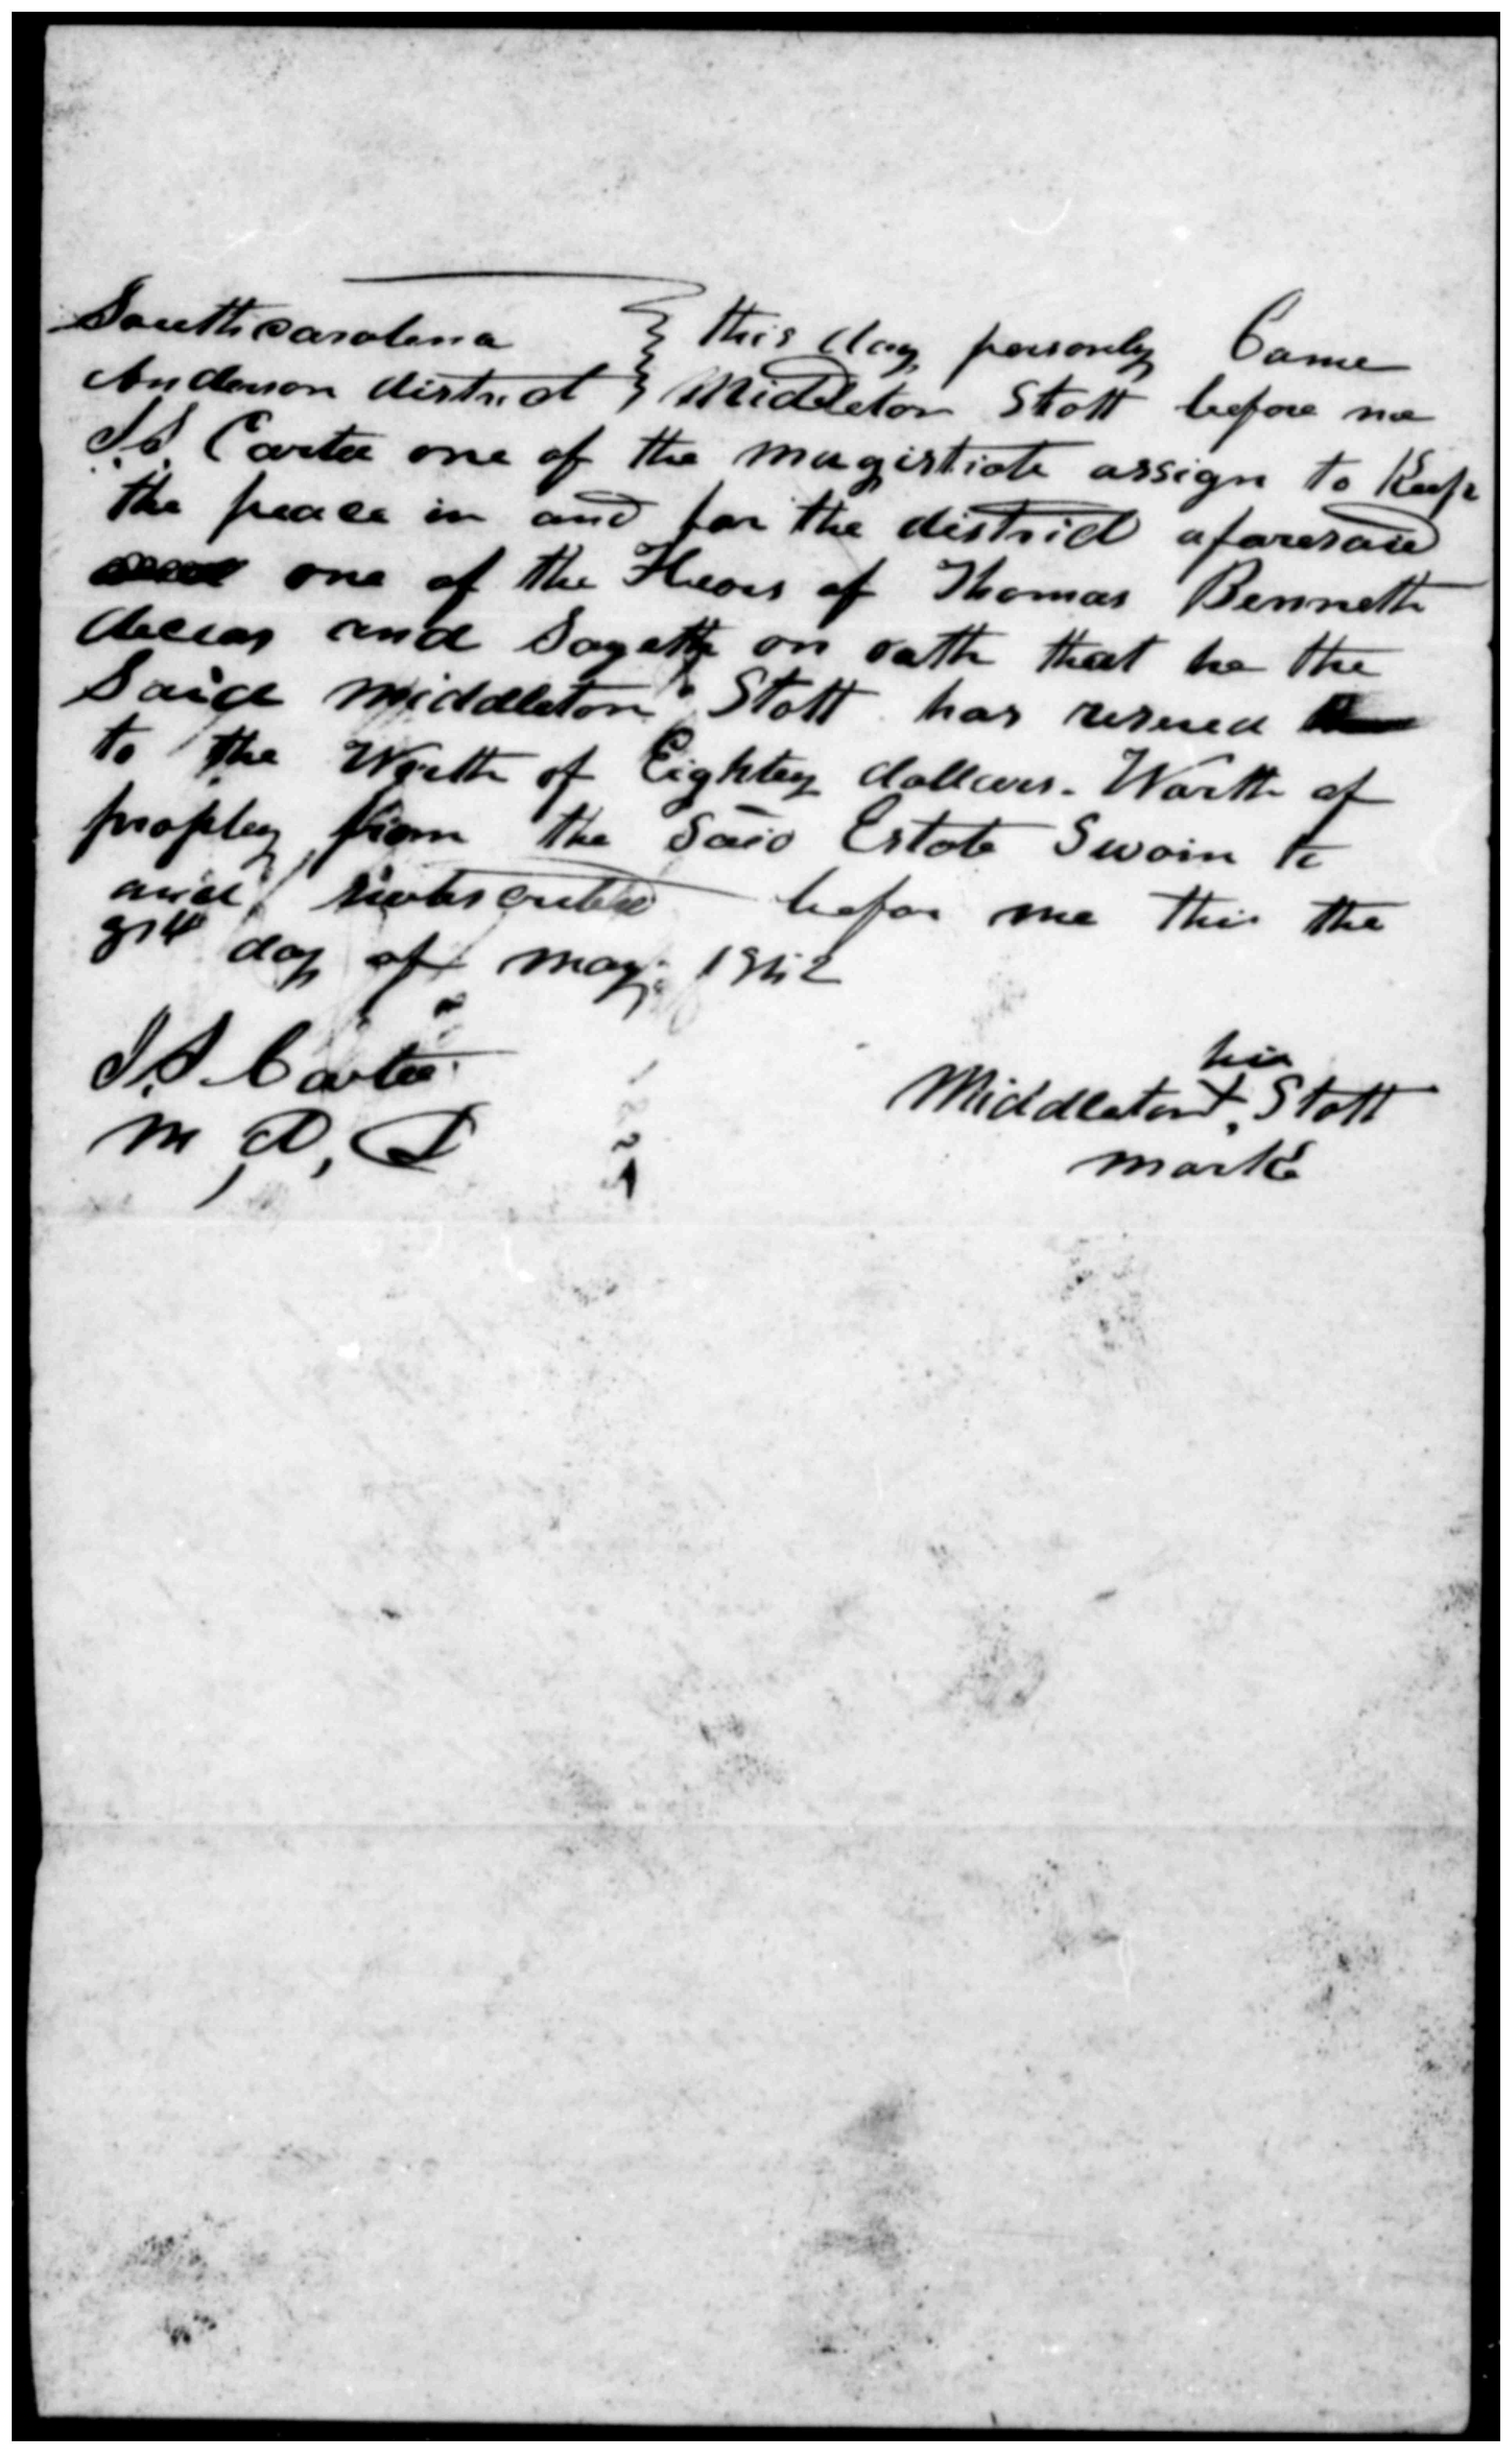 South carolena } this day personly Came
Anderson district } Middleton Stott before me
J. S. Carter one of the magistrate assign to Keep
the peace in and for the district aforesaid
one of the Heors of Thomas Bennett
deceas and Sayeth on oath that he the
Said middleton Stott has reseued
to the Worth of Eighty dollars. Worth of
propley from the Said Estate Sworn to
and subscribed befor me this the
day of may
J. S. Carter
his
Middleton + Stott
M, A, D
mark